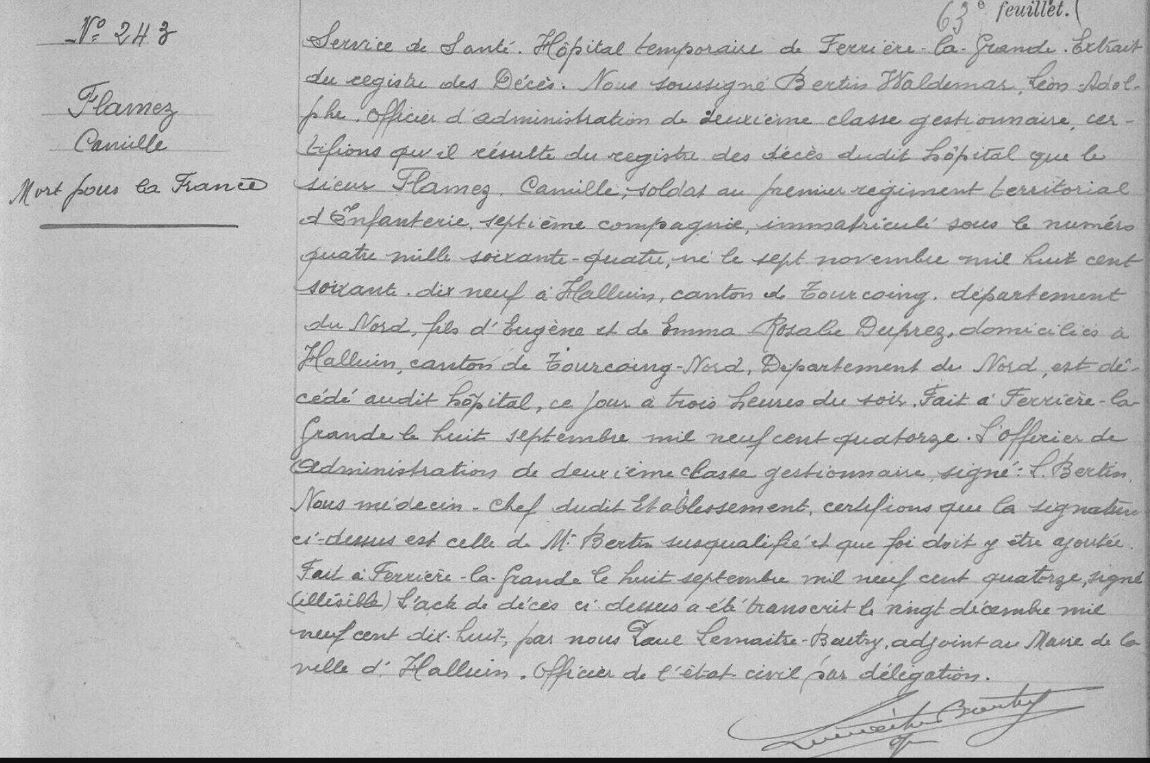 63e feuillet.
No 243
Flamez
Camille
Mort pour la France
Service de Santé. Hôpital temporaire de Ferrière-la-Grande. Extrait
du registre des Décès. Nous soussigné Bertin Waldemar, Léon-Adol-
phe. Officier d'administration de deuxième classe gestionnaire, cer-
tifions qu'il résulte du registre des décès dudit hôpital que le
sieur Flamez, Camille, soldat au premier régiment territorial
d'Infanterie, septième compagnie, immatriculé sous le numéro
quatre mille soixante-quatre, né le sept novembre mil huit cent
soixante-dix neuf à Halluin, canton de Tourcoing. département
du Nord, fils d'Eugène et de Emma Rosalie Duprez, domiciliés à
Halluin, canton de Tourcoing-Nord, Département du Nord, est dé-
cédé audit hôpital, ce jour à trois heures du soir. Fait à Ferrière-la-
Grande le huit septembre mil neuf cent quatorze. L'officier de
administration de deuxième classe gestionnaire, signé: L. Bertin.
Nous médecin-chef dudit Etablissement, certifions que la signature
ci-dessus est celle de Mr Bertin susqualifié et que foi doit y être ajoutée.
Fait à Ferrière-la-Grande le huit septembre mil neuf cent quatorze, signé
(illisible) L'acte de décès ci-dessus a été transcrit le vingt décembre mil
neuf cent dix-huit, par nous Paul Lemaitre-Boutry, adjoint au Maire de la
ville d'Halluin. Officier de l'état-civil par délégation.
Lemaitre Boutry